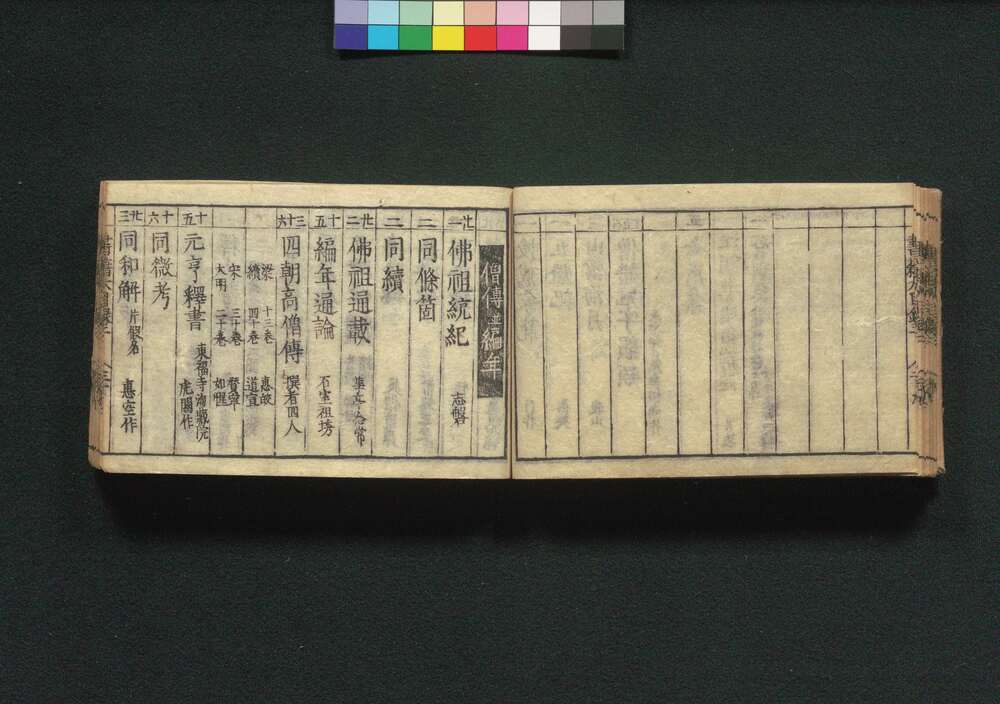 僧傳並編年
廿一 佛祖統紀 志磐
二 同條箇
二 同續
廿二 佛祖通載 念常
十五 編年通論 石室祖琇
三十六 四朝高僧傳 撰者四人
梁 十三巻 惠皎
續 四十巻 道宣
宋 三十巻 賛寧
大明 二十巻 如惺
十五 元亨釋書 東福寺海藏院
虎関作
十六 同微考
廿三 同和解 片假名 惠空作